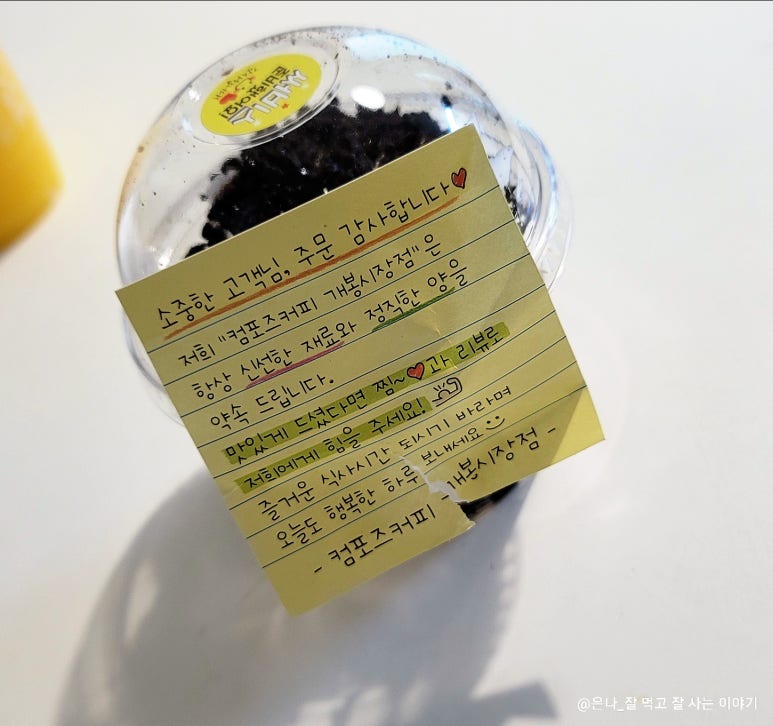 써비스
준비했어요!
감사합니다
소중한 고객님, 주문 감사합니다♥
저희 "컴포즈커피 개봉시장점"은
항상 신선한 재료와 정직한 양을
약속 드립니다.
맛있게 드셨다면 찜~♥과 리뷰로
저희에게 힘을 주세요!
즐거운 식사시간 되시기 바라며
오늘도 행복한 하루 보내세요
- 컴포즈커피 개봉시장점 -
@은나_잘 먹고 잘 사는 이야기